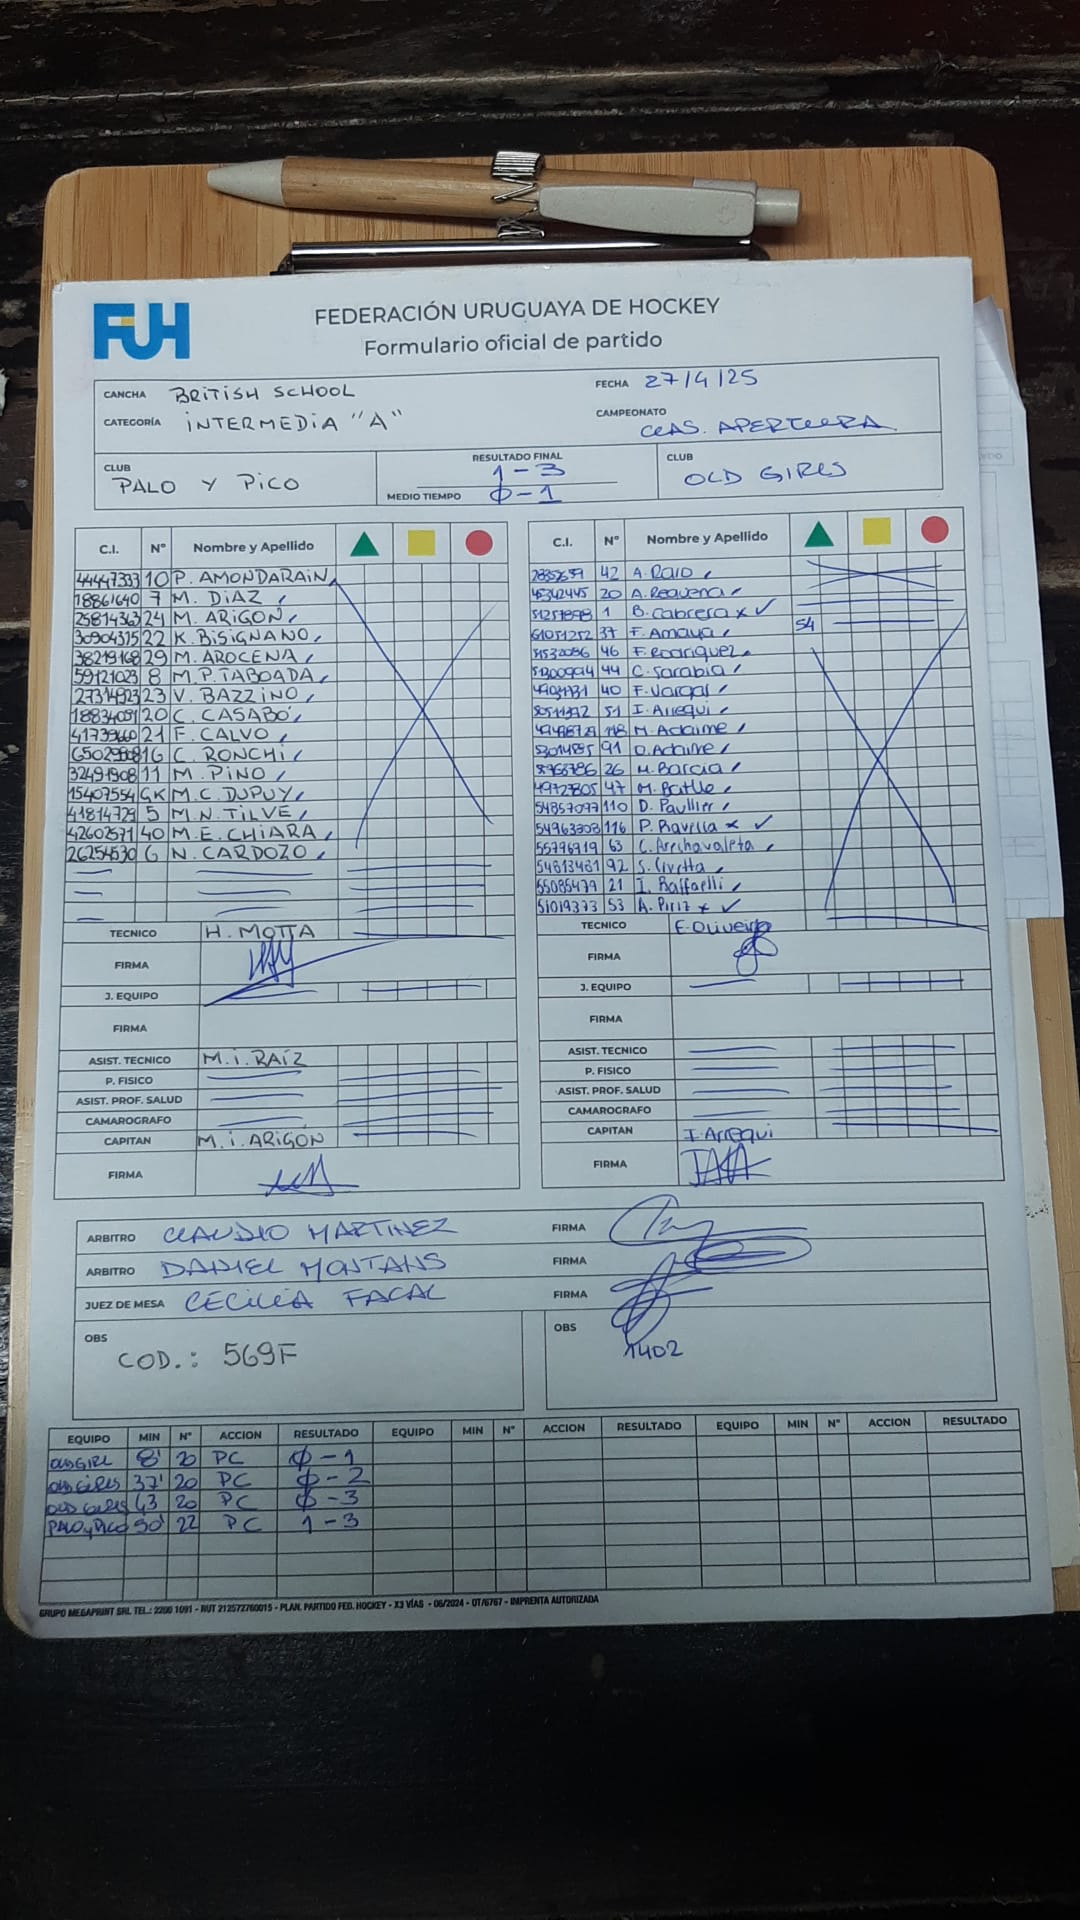 FUH
FEDERACIÓN URUGUAYA DE HOCKEY
Formulario oficial de partido
CANCHA BRITISH SCHOOL FECHA 27/4/25
CATEGORÍA INTERMEDIA "A" CAMPEONATO CLAS. APERTURA
CLUB PALO Y PICO RESULTADO FINAL 1-3 CLUB OLD GIRLS
MEDIO TIEMPO Ø-1
C.I. Nº Nombre y Apellido
44447333 10 P. AMONDARAIN
18861640 7 M. DIAZ
25814363 24 M. ARIGON
30904315 22 K. BISIGNANO
38219168 29 M. AROCENA
59121023 8 M.P. TABOADA
27314923 23 V. BAZZINO
18834091 20 C. CASABÓ
21 F. CALVO
16 C. RONCHI
32491908 11 M. PINO
15407554 GK M.C. DUPUY
41814729 5 M.N. TILVE
42602571 40 M.E. CHIARA
26254530 6 N. CARDOZO
TECNICO H. MOTTA
FIRMA
J. EQUIPO
FIRMA
ASIST. TECNICO M.i. RAÍZ
P. FISICO
ASIST. PROF. SALUD
CAMAROGRAFO
CAPITAN M.i. ARIGÓN
FIRMA
C.I. Nº Nombre y Apellido
42 A. Raio
45342445 20 A. Requena
51251898 1 B. Cabrera x ✓
61051252 37 F. Amaya 54
46 F. Rodriguez
44 C. Sarabia
40 F. Vargas
51 I. Arregui
118 M. Adaime
91 D. Adaime
26 M. Barcia
49727805 47 M. Batlle
54857097 110 D. Paullier
54963303 116 P. Ravella x ✓
55796919 63 C. Arechavaleta
54813461 92 S. Civetta
55085479 21 I. Raffaelli
51019373 53 A. Piriz x ✓
TECNICO F. Oliveira
FIRMA
J. EQUIPO
FIRMA
ASIST. TECNICO
P. FISICO
ASIST. PROF. SALUD
CAMAROGRAFO
CAPITAN I. Arregui
FIRMA
ARBITRO CLAUDIO MARTINEZ FIRMA
ARBITRO DANIEL MONTANS FIRMA
JUEZ DE MESA CECILIA FACAL FIRMA
OBS COD.: 569F
OBS 1402
EQUIPO MIN Nº ACCION RESULTADO EQUIPO MIN Nº ACCION RESULTADO EQUIPO MIN Nº ACCION RESULTADO
OLD GIRL 8' 20 PC Ø-1
OLD GIRLS 37' 20 PC Ø-2
OLD GIRLS 43 20 PC Ø-3
PALO y PICO 50' 22 PC 1-3
GRUPO MEGAPRINT SRL TEL.: 2200 1091 - RUT 212572760015 - PLAN. PARTIDO FED. HOCKEY - X3 VÍAS - 06/2024 - OT/6767 - IMPRENTA AUTORIZADA